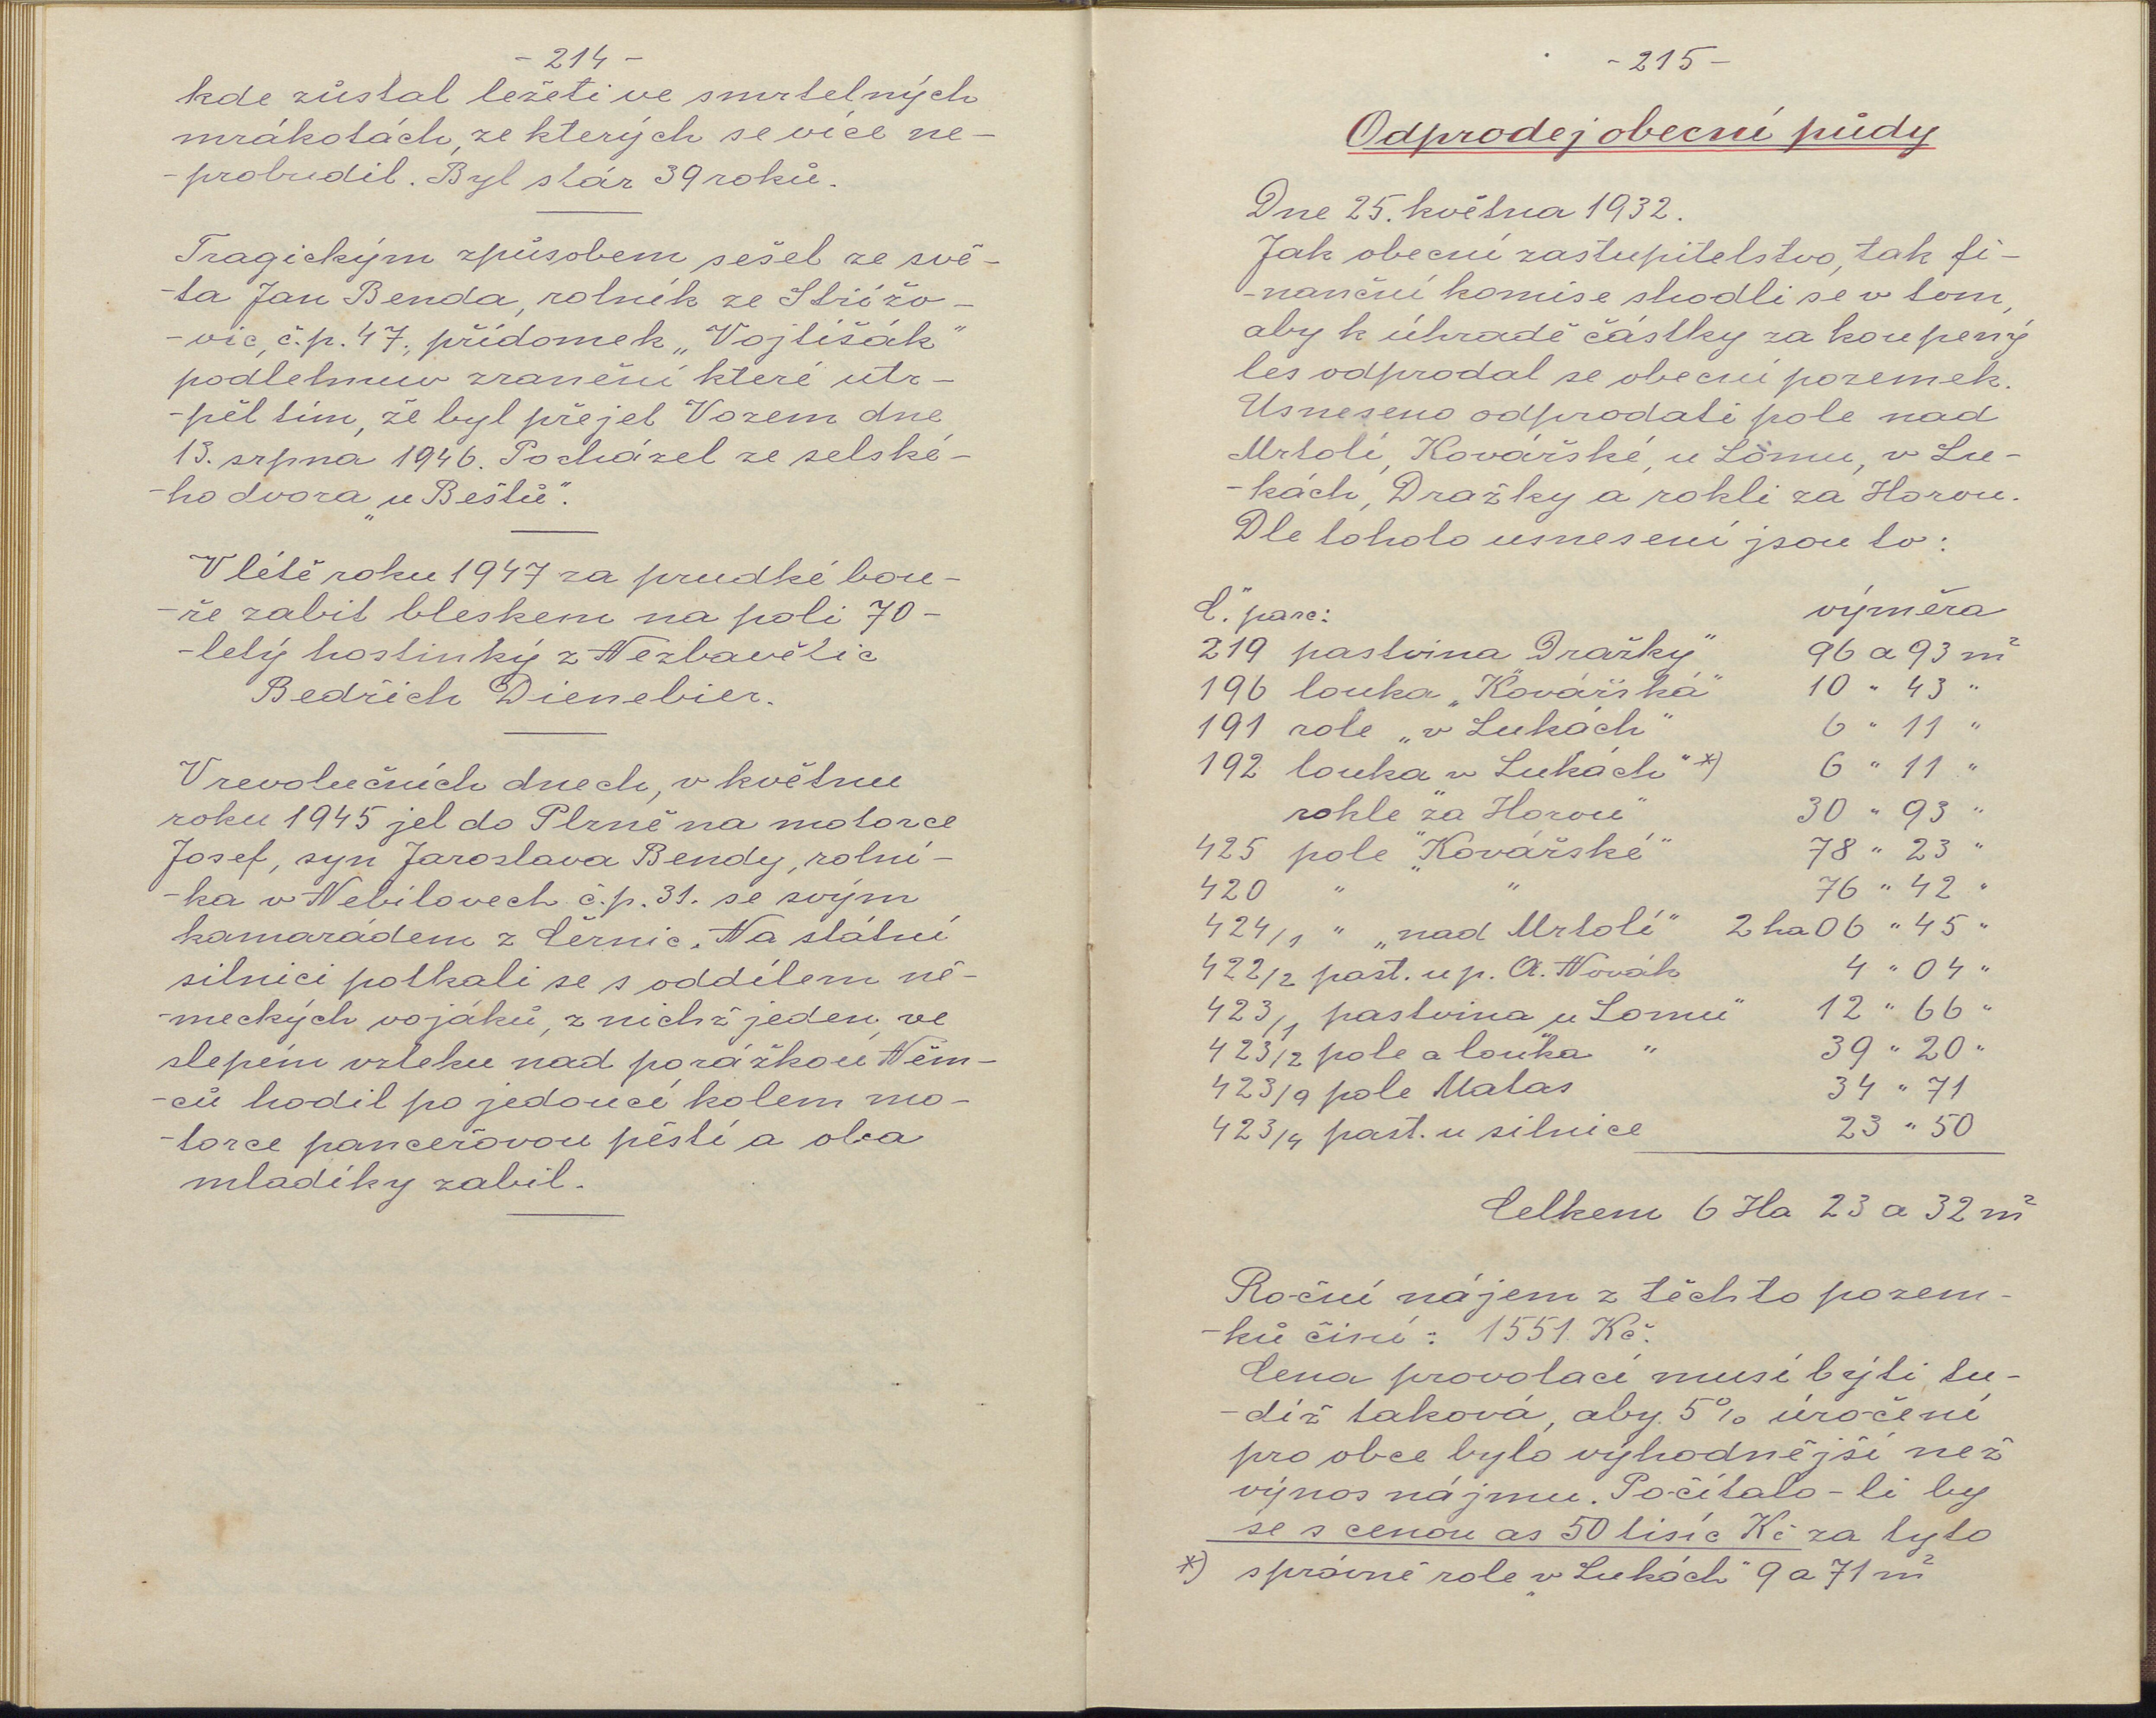 - 214 -
kde zůstal ležeti ve smrtelných
mrákotách, ze kterých se více ne-
-probudil. Byl stár 39 roků.
Tragickým způsobem sešel ze svě-
-ta Jan Benda, rolník ze Střížo-
-vic, č.p. 47., přídomek „Vojtíšák"
podlehnuv zranění které utr-
-pěl tím, že byl přejet Vozem dne
13. srpna 1946. Pocházel ze selské-
-ho dvora „u Beštů".
V létě roku 1947 za prudké bou-
-ře zabit bleskem na poli 70-
-letý hostinký z Nezbavětic
Bedřich Dienebier.
V revolučních dnech, v květnu
roku 1945 jel do Plzně na motorce
Josef, syn Jaroslava Bendy, rolní-
-ka v Nebílovech č.p. 31. se svým
kamarádem z Černic. Na státní
silnici potkali se s oddílem ně-
-meckých vojáků, z nichž jeden, ve
slepém vzteku nad porážkou Něm-
-ců hodil po jedoucí kolem mo-
-torce pancéřovou pěstí a oba
mladíky zabil.
- 215 -
Odprodej obecní půdy
Dne 25. května 1932.
Jak obecní zastupitelstvo, tak fi-
-nanční komise shodli se v tom,
aby k úhradě částky za koupený
les odprodal se obecní pozemek.
Usneseno odprodati pole nad
Mrtolí, Kovářské, u Lomu, v Lu-
-kách, Dražky a rokli za Horou.
Dle tohoto usnesení jsou to:
Č. parc: výměra
219 pastvina „Dražky" 96 a 93 m²
196 louka „Kovářská" 10 " 43 "
191 role „v Lukách" 6 " 11 "
192 louka „v Lukách" *) 6 " 11 "
rokle „za Horou" 30 " 93 "
425 pole „Kovářské" 78 " 23 "
420 " " 76 " 42 "
424/1 " „nad Mrtolí" 2 ha 06 " 45 "
422/2 past. u p. A. Novák 4 " 04 "
423/1 pastvina „u Lomu" 12 " 66 "
423/2 pole a louka " 39 " 20 "
423/9 pole Matas 34 " 71
423/4 past. u silnice 23 " 50
Celkem 6 Ha 23 a 32 m²
Roční nájem z těchto pozem-
-ků činí: 1551 Kč.
Cena provolací musí býti tu-
-díž taková, aby 5% úročení
pro obce bylo výhodnější než
výnos nájmu. Počítalo-li by
se s cenou as 50 tisíc Kč za tyto
*) správně role „v Lukách" 9 a 71 m²